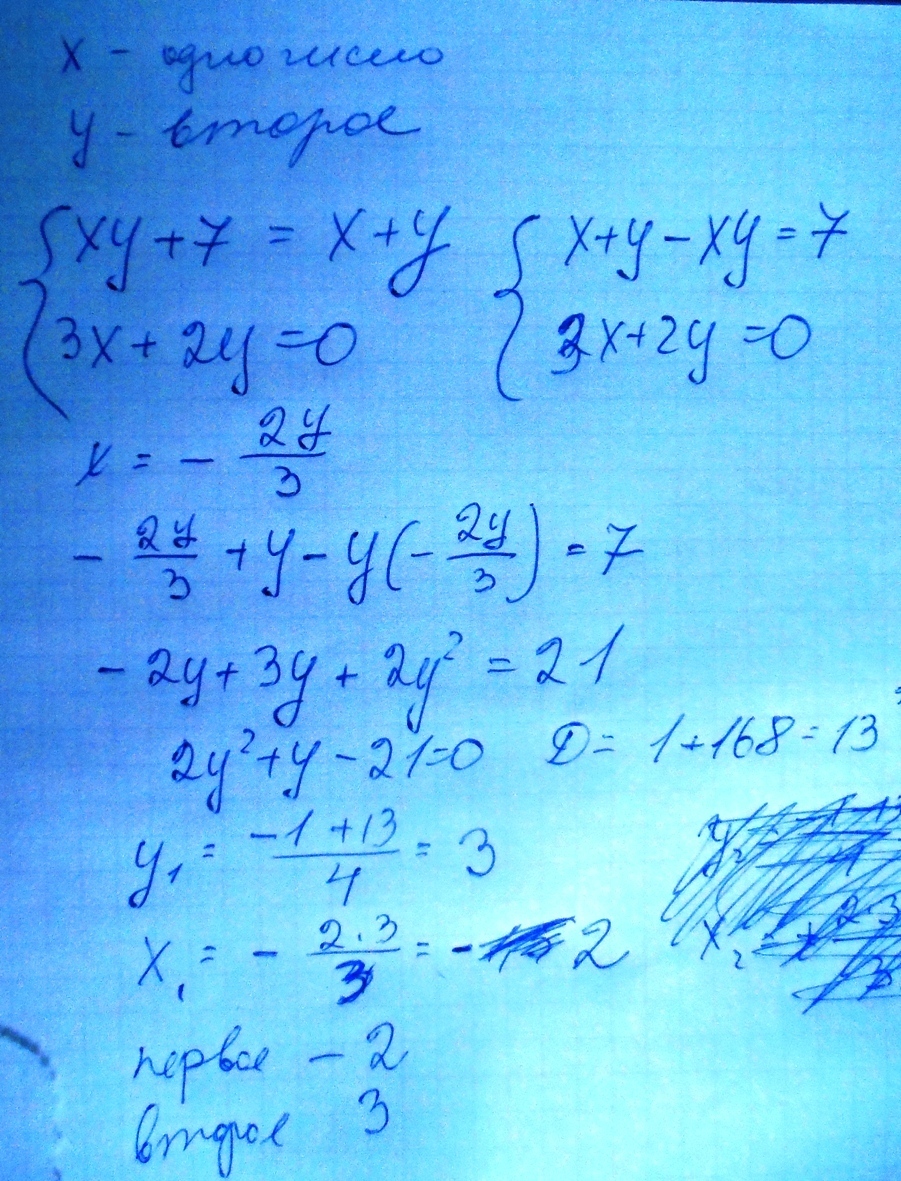 x - одно число
y - второе
{ xy + 7 = x + y { x + y - xy = 7
3x + 2y = 0 3x + 2y = 0
x = - 2y/3
- 2y/3 + y - y(- 2y/3) = 7
- 2y + 3y + 2y² = 21
2y² + y - 21 = 0 D = 1 + 168 = 13²
y₁ = (-1 + 13)/4 = 3
x₁ = - 2·3/3 = - 2
первое - 2
второе 3